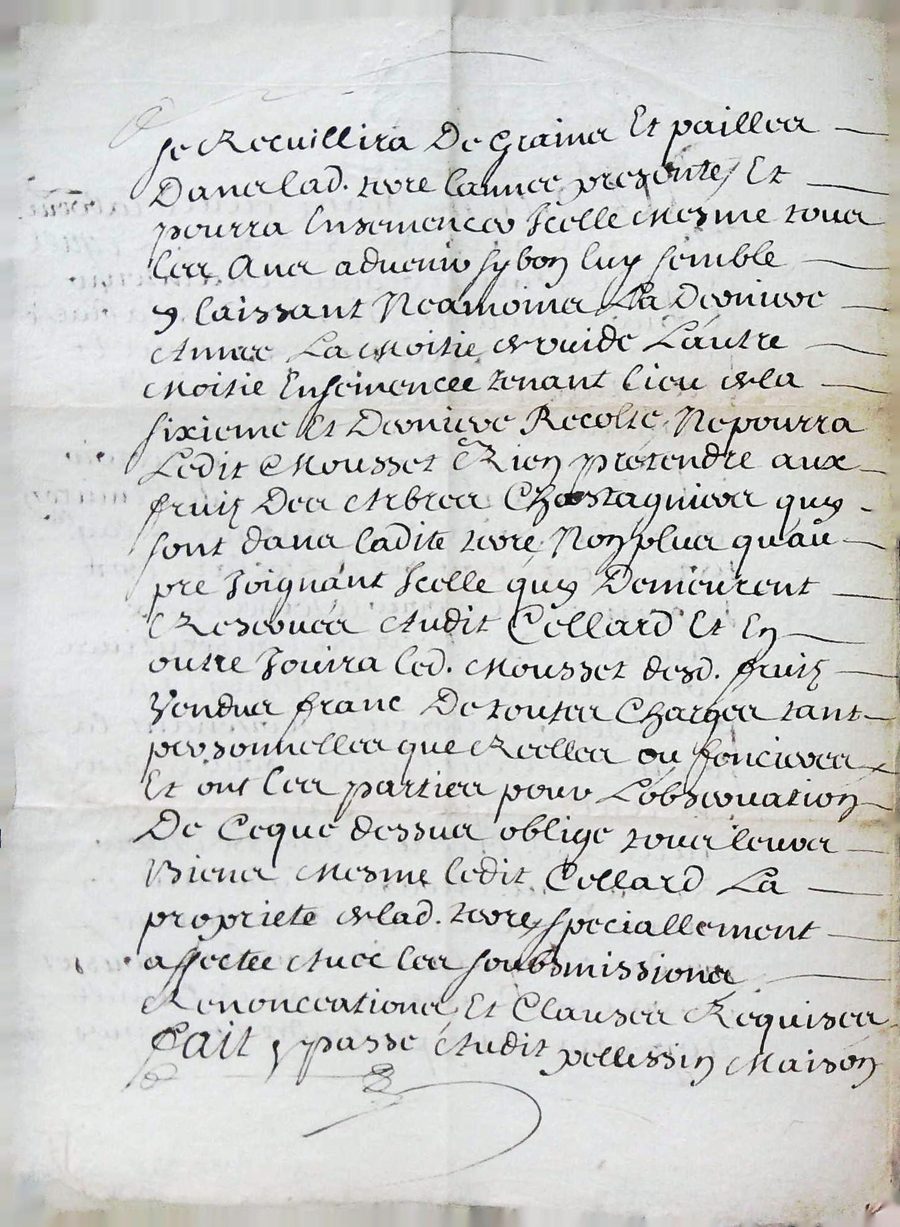 se Recuillira De Grains Et pailles
Dans lad. terre lannee presente, Et
pourra Ensemencer Icelle mesme tous
les Ans advenir sy bon luy semble
y laissant Neamoins La Derniere
Annee La Moitie de vuide L'autre
Moitie Ensemencee tenant lieu de la
sixieme Et Derniere Recolte, Ne pourra
Ledit Mousset Rien pretendre aux
fruitz Des Arbres Chastagniers quy
sont dans ladite terre Non plus qu'au
pre Joignant Icelle quy Demeurent
Reservés Audit Cellard Et En
outre Jouira led. Mousset desd. fruitz
Vendus franc De toutes Charges tant
personnelles que Reelles ou foncieres
Et ont les parties pour L'observation
De Ce que dessus oblige tous leurs
Biens Mesme ledit Cellard La
propriete de lad. terre speciallement
affectee Avec les soubsmissions
Renonceations Et Clauses Requises
fait y passé Audit pellissin Maison